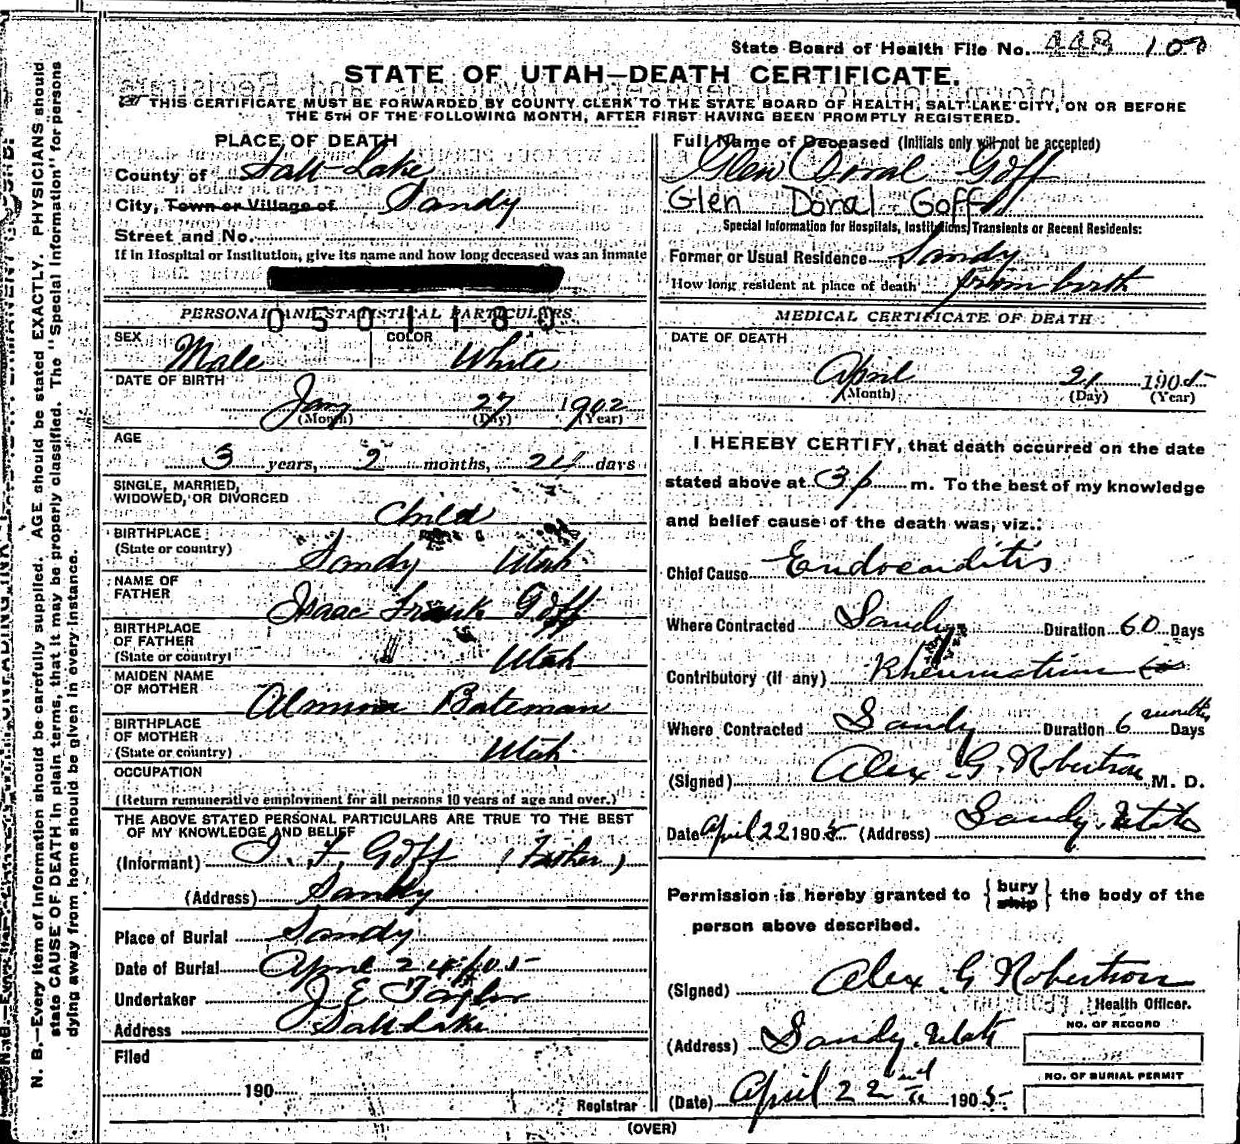 State Board of Health File No. 448 100
STATE OF UTAH—DEATH CERTIFICATE.
THIS CERTIFICATE MUST BE FORWARDED BY COUNTY CLERK TO THE STATE BOARD OF HEALTH, SALT LAKE CITY, ON OR BEFORE
THE 5TH OF THE FOLLOWING MONTH, AFTER FIRST HAVING BEEN PROMPTLY REGISTERED.
PLACE OF DEATH
County of Salt Lake
City, Town or Village of Sandy
Street and No.
If in Hospital or Institution, give its name and how long deceased was an inmate
0501180
PERSONAL AND STATISTICAL PARTICULARS
SEX Male COLOR White
DATE OF BIRTH
Jan 27 1902
(Month) (Day) (Year)
AGE
3 years, 2 months, 24 days
SINGLE, MARRIED,
WIDOWED, OR DIVORCED
Child
BIRTHPLACE
(State or country) Sandy Utah
NAME OF
FATHER Isaac Frank Goff
BIRTHPLACE
OF FATHER
(State or country) Utah
MAIDEN NAME
OF MOTHER Bateman
BIRTHPLACE
OF MOTHER
(State or country) Utah
OCCUPATION
(Return remunerative employment for all persons 10 years of age and over.)
THE ABOVE STATED PERSONAL PARTICULARS ARE TRUE TO THE BEST
OF MY KNOWLEDGE AND BELIEF
(Informant) I. F. Goff (Father)
(Address) Sandy
Place of Burial Sandy
Date of Burial April 24/05
Undertaker J E Taylor
Address Salt Lake
Filed
190
Registrar
Full Name of Deceased (Initials only will not be accepted)
Glen Doral Goff
Glen Doral Goff
Special Information for Hospitals, Institutions, Transients or Recent Residents:
Former or Usual Residence Sandy
How long resident at place of death from birth
MEDICAL CERTIFICATE OF DEATH
DATE OF DEATH
April 21 1905
(Month) (Day) (Year)
I HEREBY CERTIFY, that death occurred on the date
stated above at 3 p m. To the best of my knowledge
and belief cause of the death was, viz.:
Chief Cause Endocarditis
Where Contracted Sandy Duration 60 Days
Contributory (if any) Rheumatism
Where Contracted Sandy Duration 6 months Days
(Signed) Alex G. Robertson, M. D.
Date April 22 1905 (Address) Sandy, Utah
Permission is hereby granted to {bury ship} the body of the
person above described.
(Signed) Alex G Robertson
Health Officer.
(Address) Sandy, Utah
NO. OF RECORD
(Date) April 22nd 1905
NO. OF BURIAL PERMIT
(OVER)
N. B.—Every item of information should be carefully supplied. AGE should be stated EXACTLY. PHYSICIANS should
state CAUSE OF DEATH in plain terms, that it may be properly classified. The "Special Information" for persons
dying away from home should be given in every instance.